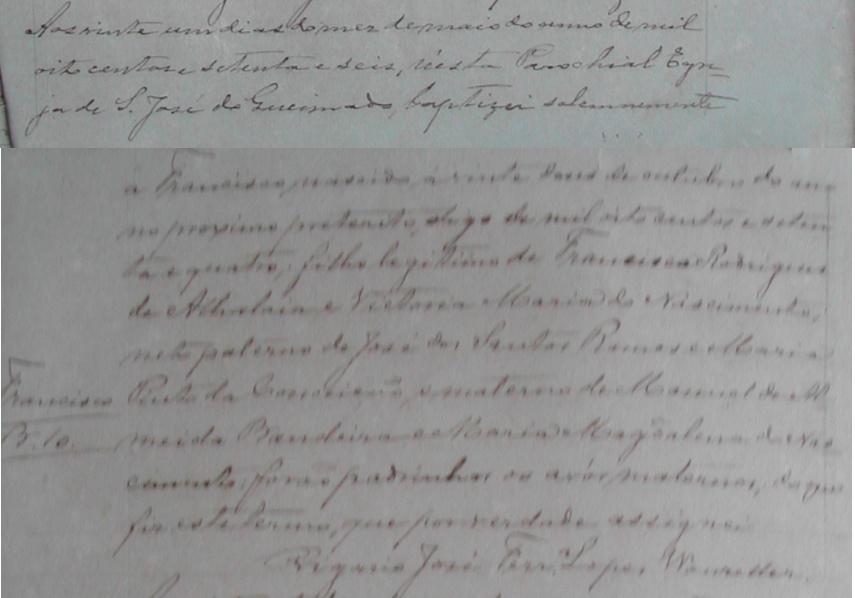 Aos vinte um dias do mez de maio do anno de mil
oito centos e setenta e seis, n'esta Parochial Egre=
ja de S. José do Queimado, baptizei solemnemente
a Francisco, nascido á vinte dous de outubro do an=
no proximo preterito, digo de mil oito centos e seten
ta e quatro; filho legitimo de Francisco Rodrigues
de Athalaia e Victoria Maria do Nascimento,
neto paterno de José dos Santos Ramos e Maria
Francisco
Pinto da Conceição, e materno de Manoel de Al
B. to.
meida Bandeira e Maria Magdalena do Nas
cimento; forão padrinhos os avós maternos, do que
fiz este termo, que por verdade assignei
Vigario José Ferr.ª Lopes